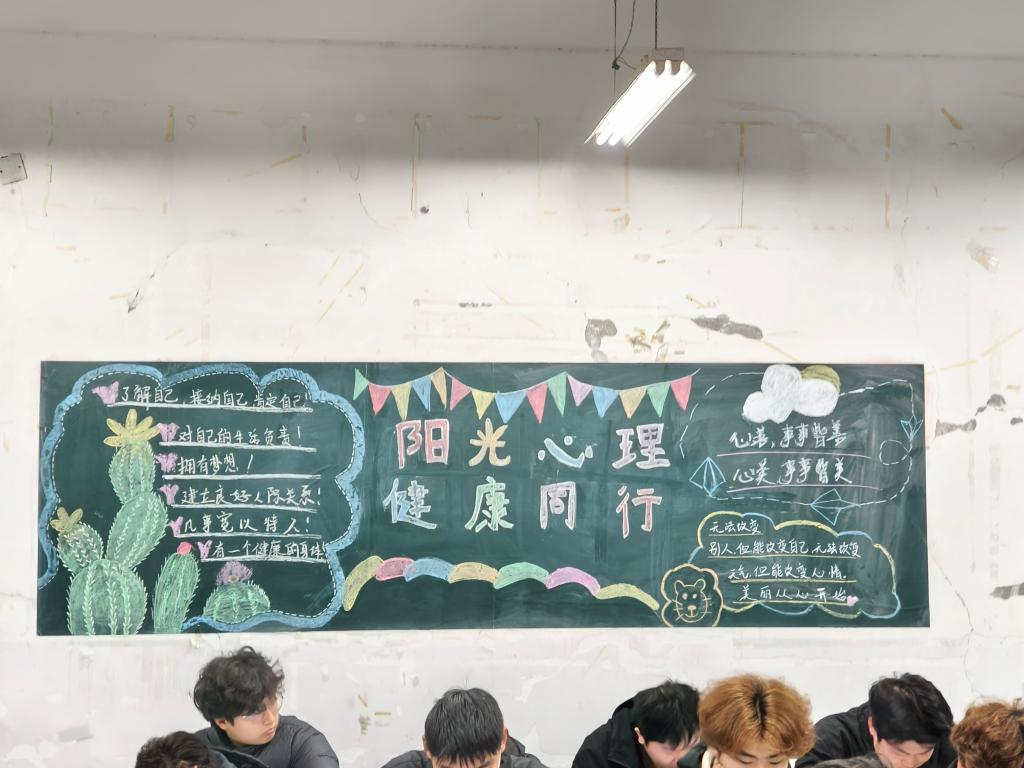 了解自己，接纳自己，肯定自己！
对自己的生活负责！
拥有梦想！
建立良好人际关系！
凡事宽以待人！
有一个健康的身体！
阳光心理
健康同行
心善，事事皆善
心美 事事皆美
无法改变
别人但能改变自己 无法改变
天气，但能改变心情.
美丽从心开始